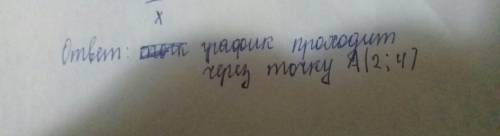 x
Ответ: график проходит
через точку A(2;4)